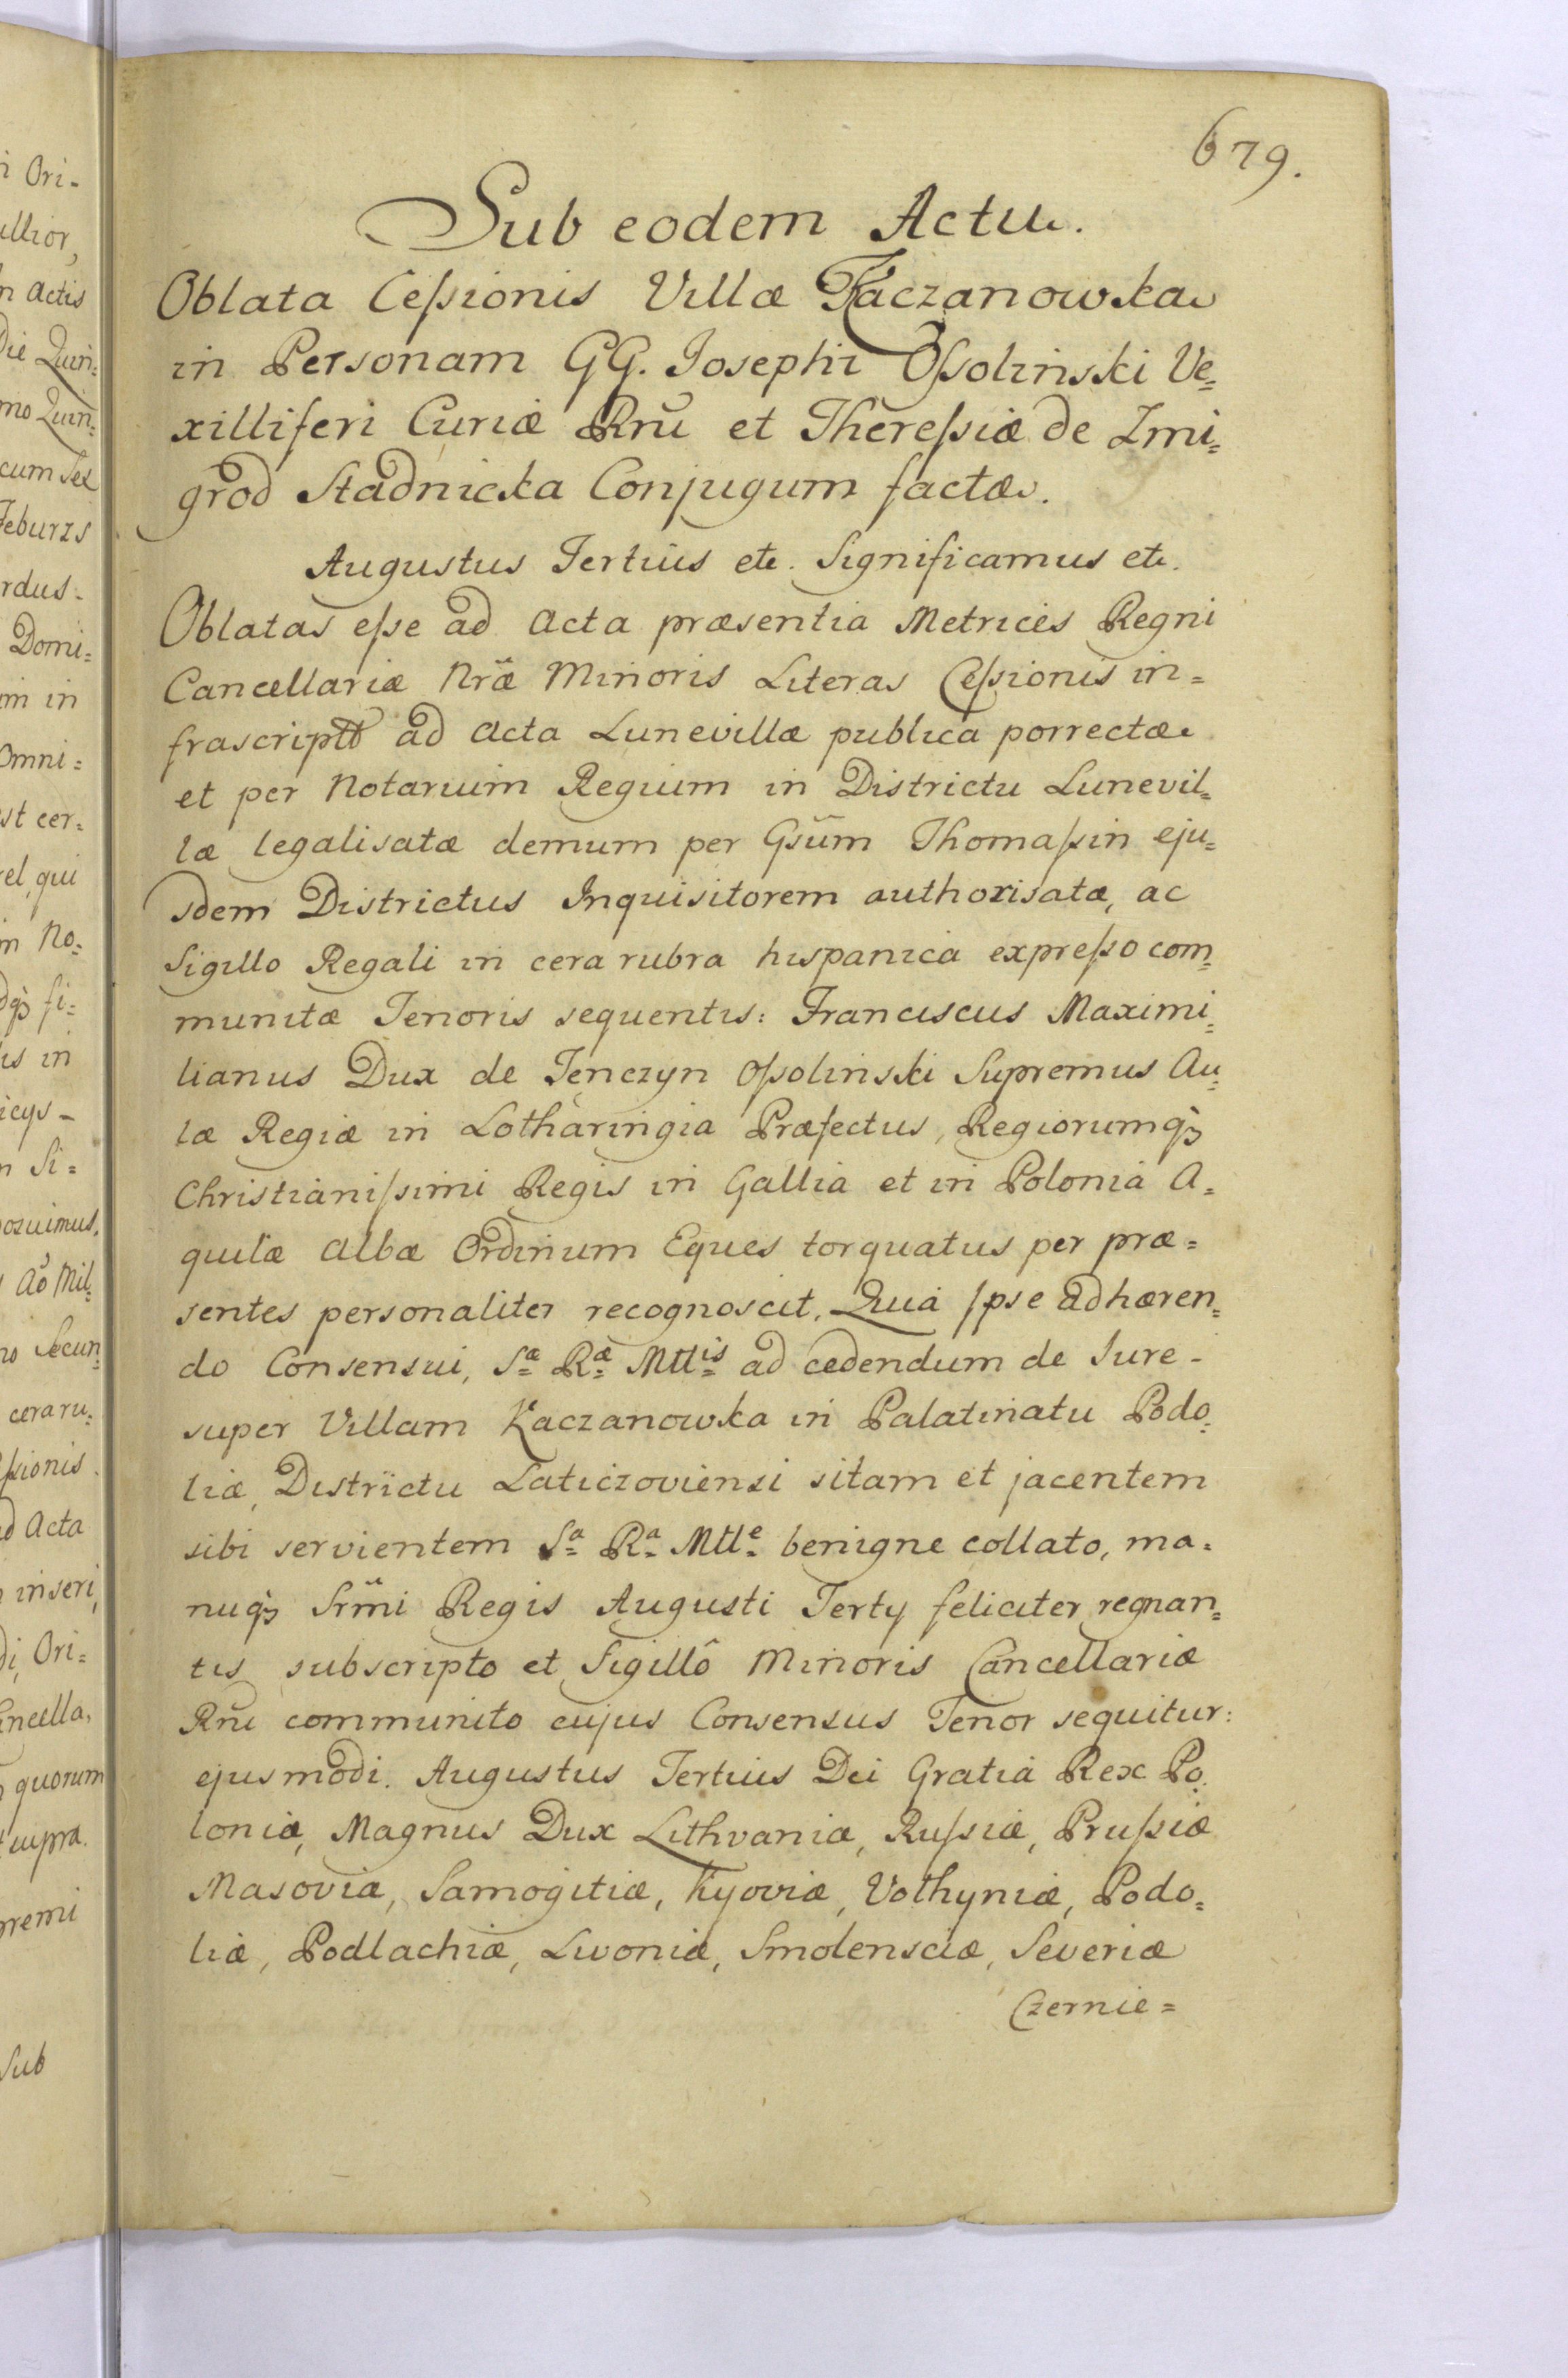 679.
Sub eodem Actu.
Oblata Ceſsionis Villæ Kaczanowka
in Personam GG. Josephi Oſsolinski Ve=
xilliferi Curiæ Rñi et Thereſsiæ de Zmi=
grod Stadnicka Conjugum factæ.
Augustus Tertius etc. Significamus etc.
Oblatas eſse ad Acta præsentia Metrices Regni
Cancellariæ Nræ Minoris Literas Ceſsionis in=
frascriptæ ad Acta Lunevillæ publica porrectæ
et per Notarium Regium in Districtu Lunevil=
læ legalisatæ demum per Gsũm Thomaſsin eju=
sdem Districtus Inquisitorem authorisatæ, ac
Sigillo Regali in cera rubra hispanica expreſso com=
munitæ Tenoris sequentis: Franciscus Maximi=
lianus Dux de Tenczyn Oſsolinski Supremus Au=
læ Regiæ in Lotharingia Præfectus, Regiorumqꝫ
Christianiſsimi Regis in Gallia et in Polonia A=
quilæ Albæ Ordinum Eques torquatus per præ=
sentes personaliter recognoscit. Quia Ipse adhæren=
do Consensui, Sæ Ræ Mttis ad cedendum de Jure
super Villam Kaczanowka in Palatinatu Podo=
liæ, Districtu Laticzoviensi sitam et jacentem
sibi servientem Sa Ra Mtte benigne collato, ma=
nuqꝫ Srm̃i Regis Augusti Terty feliciter regnan=
tis subscripto et Sigillô Minoris Cancellariæ
Rñi communito cujus Consensus Tenor sequitur:
ejusmodi. Augustus Tertius Dei Gratia Rex Po=
loniæ, Magnus Dux Lithvaniæ, Ruſsiæ, Pruſsiæ
Masoviæ, Samogitiæ, Kyoviæ, Volhyniæ, Podo=
liæ, Podlachiæ, Livoniæ, Smolensciæ, Severiæ
Czernie=